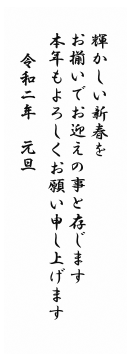 輝かしい新春を
お揃いでお迎えの事と存じます
本年もよろしくお願い申し上げます
令和二年　元旦